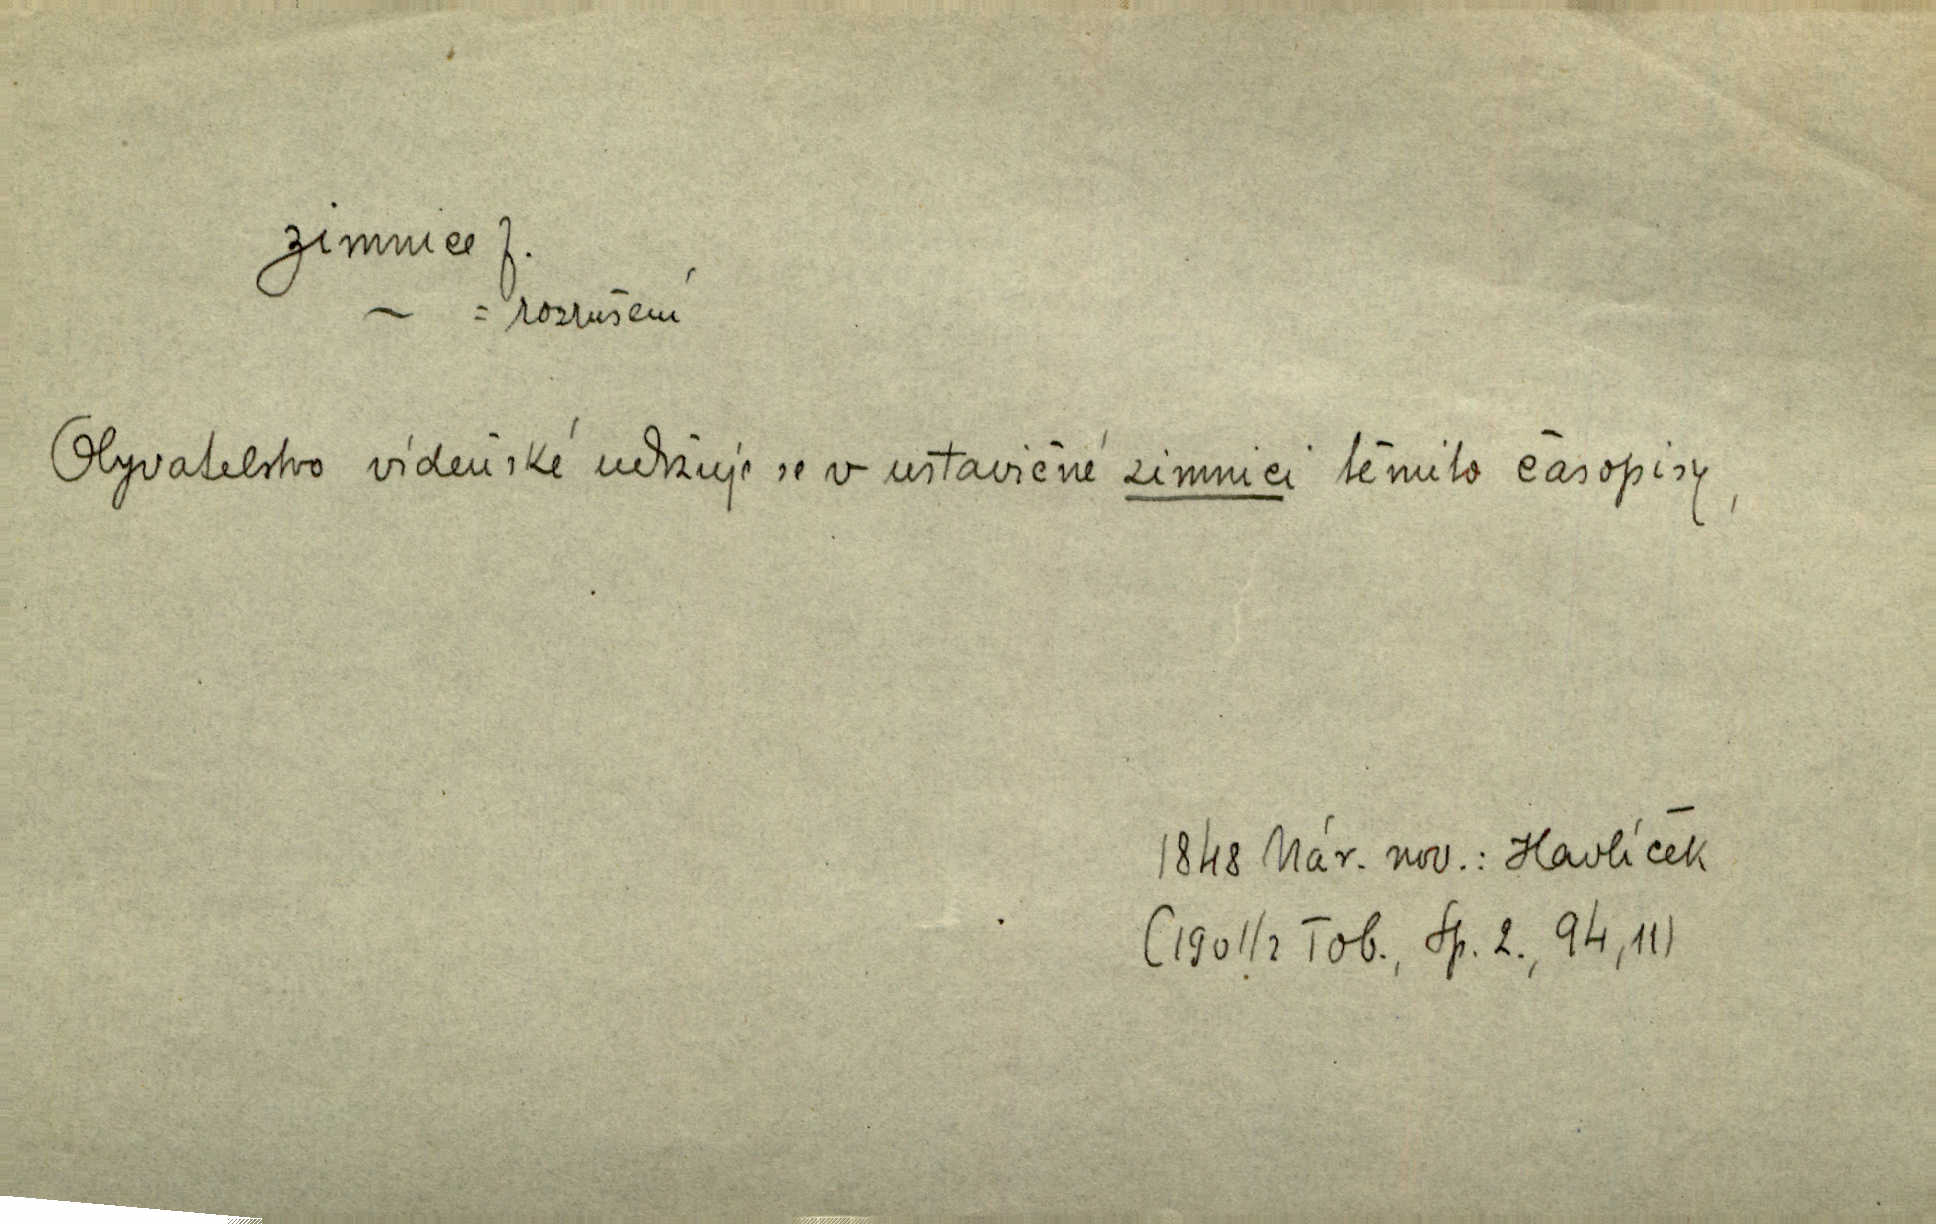 zimnice f.
~ = rozrušení
Obyvatelstvo vídeňské udržuje se v ustavičné zimnici těmito časopisy,
1848 Nár. nov.: Havlíček
(1901/2 Tob., Sp. 2., 94, 11)